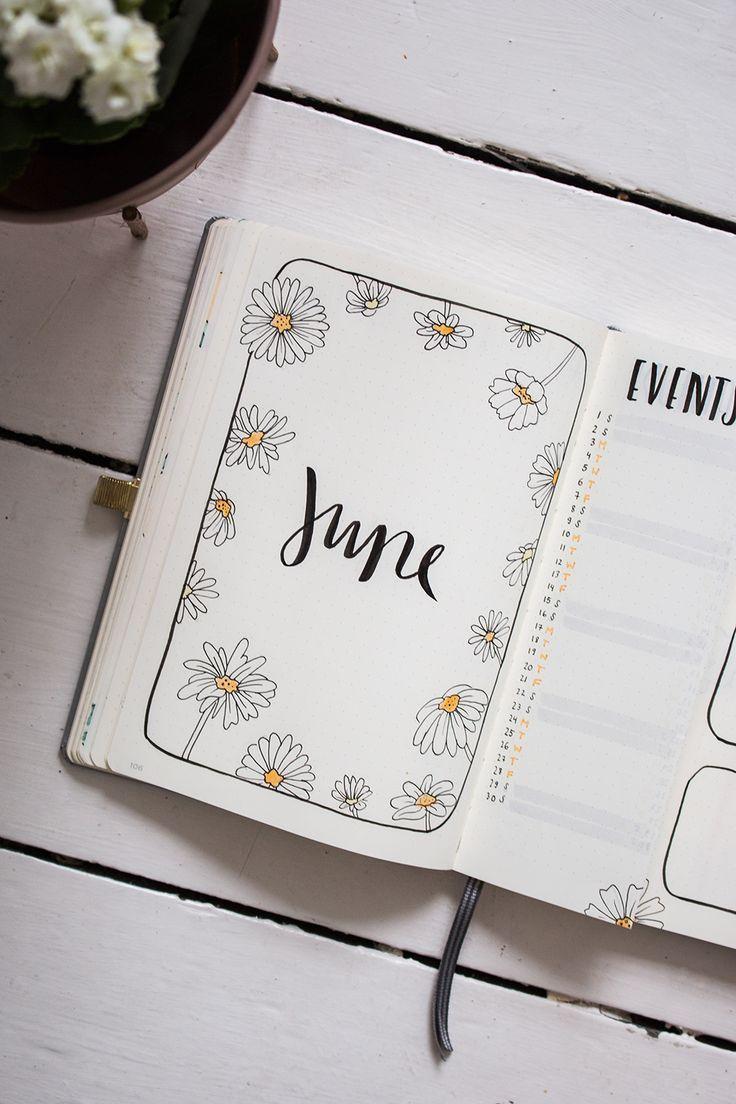 June
106
EVENTS
1 S
2 S
3 M
4 T
5 W
6 T
7 F
8 S
9 S
10 M
11 T
12 W
13 T
14 F
15 S
16 S
17 M
18 T
19 W
20 T
21 F
22 S
23 S
24 M
25 T
26 W
27 T
28 F
29 S
30 S